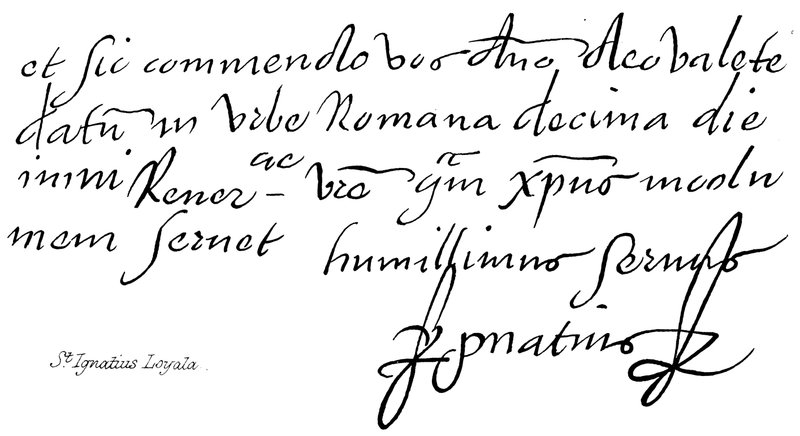 et sic commendo vos dno Deo valete
datū in Vrbe Romana decima die
iunij Rener ac vrē grm xpus incolu
mem seruet humillimus seruus
Ignatius
St. Ignatius Loyala.